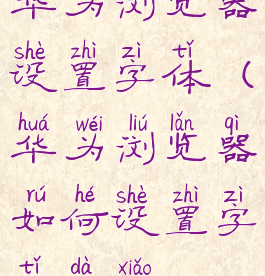 华为浏览器
shè zhì zì tǐ
设置字体（
huá wéi liú lǎn qì
华为浏览器
rú hé shè zhì zì
如何设置字
tǐ dà xiǎo